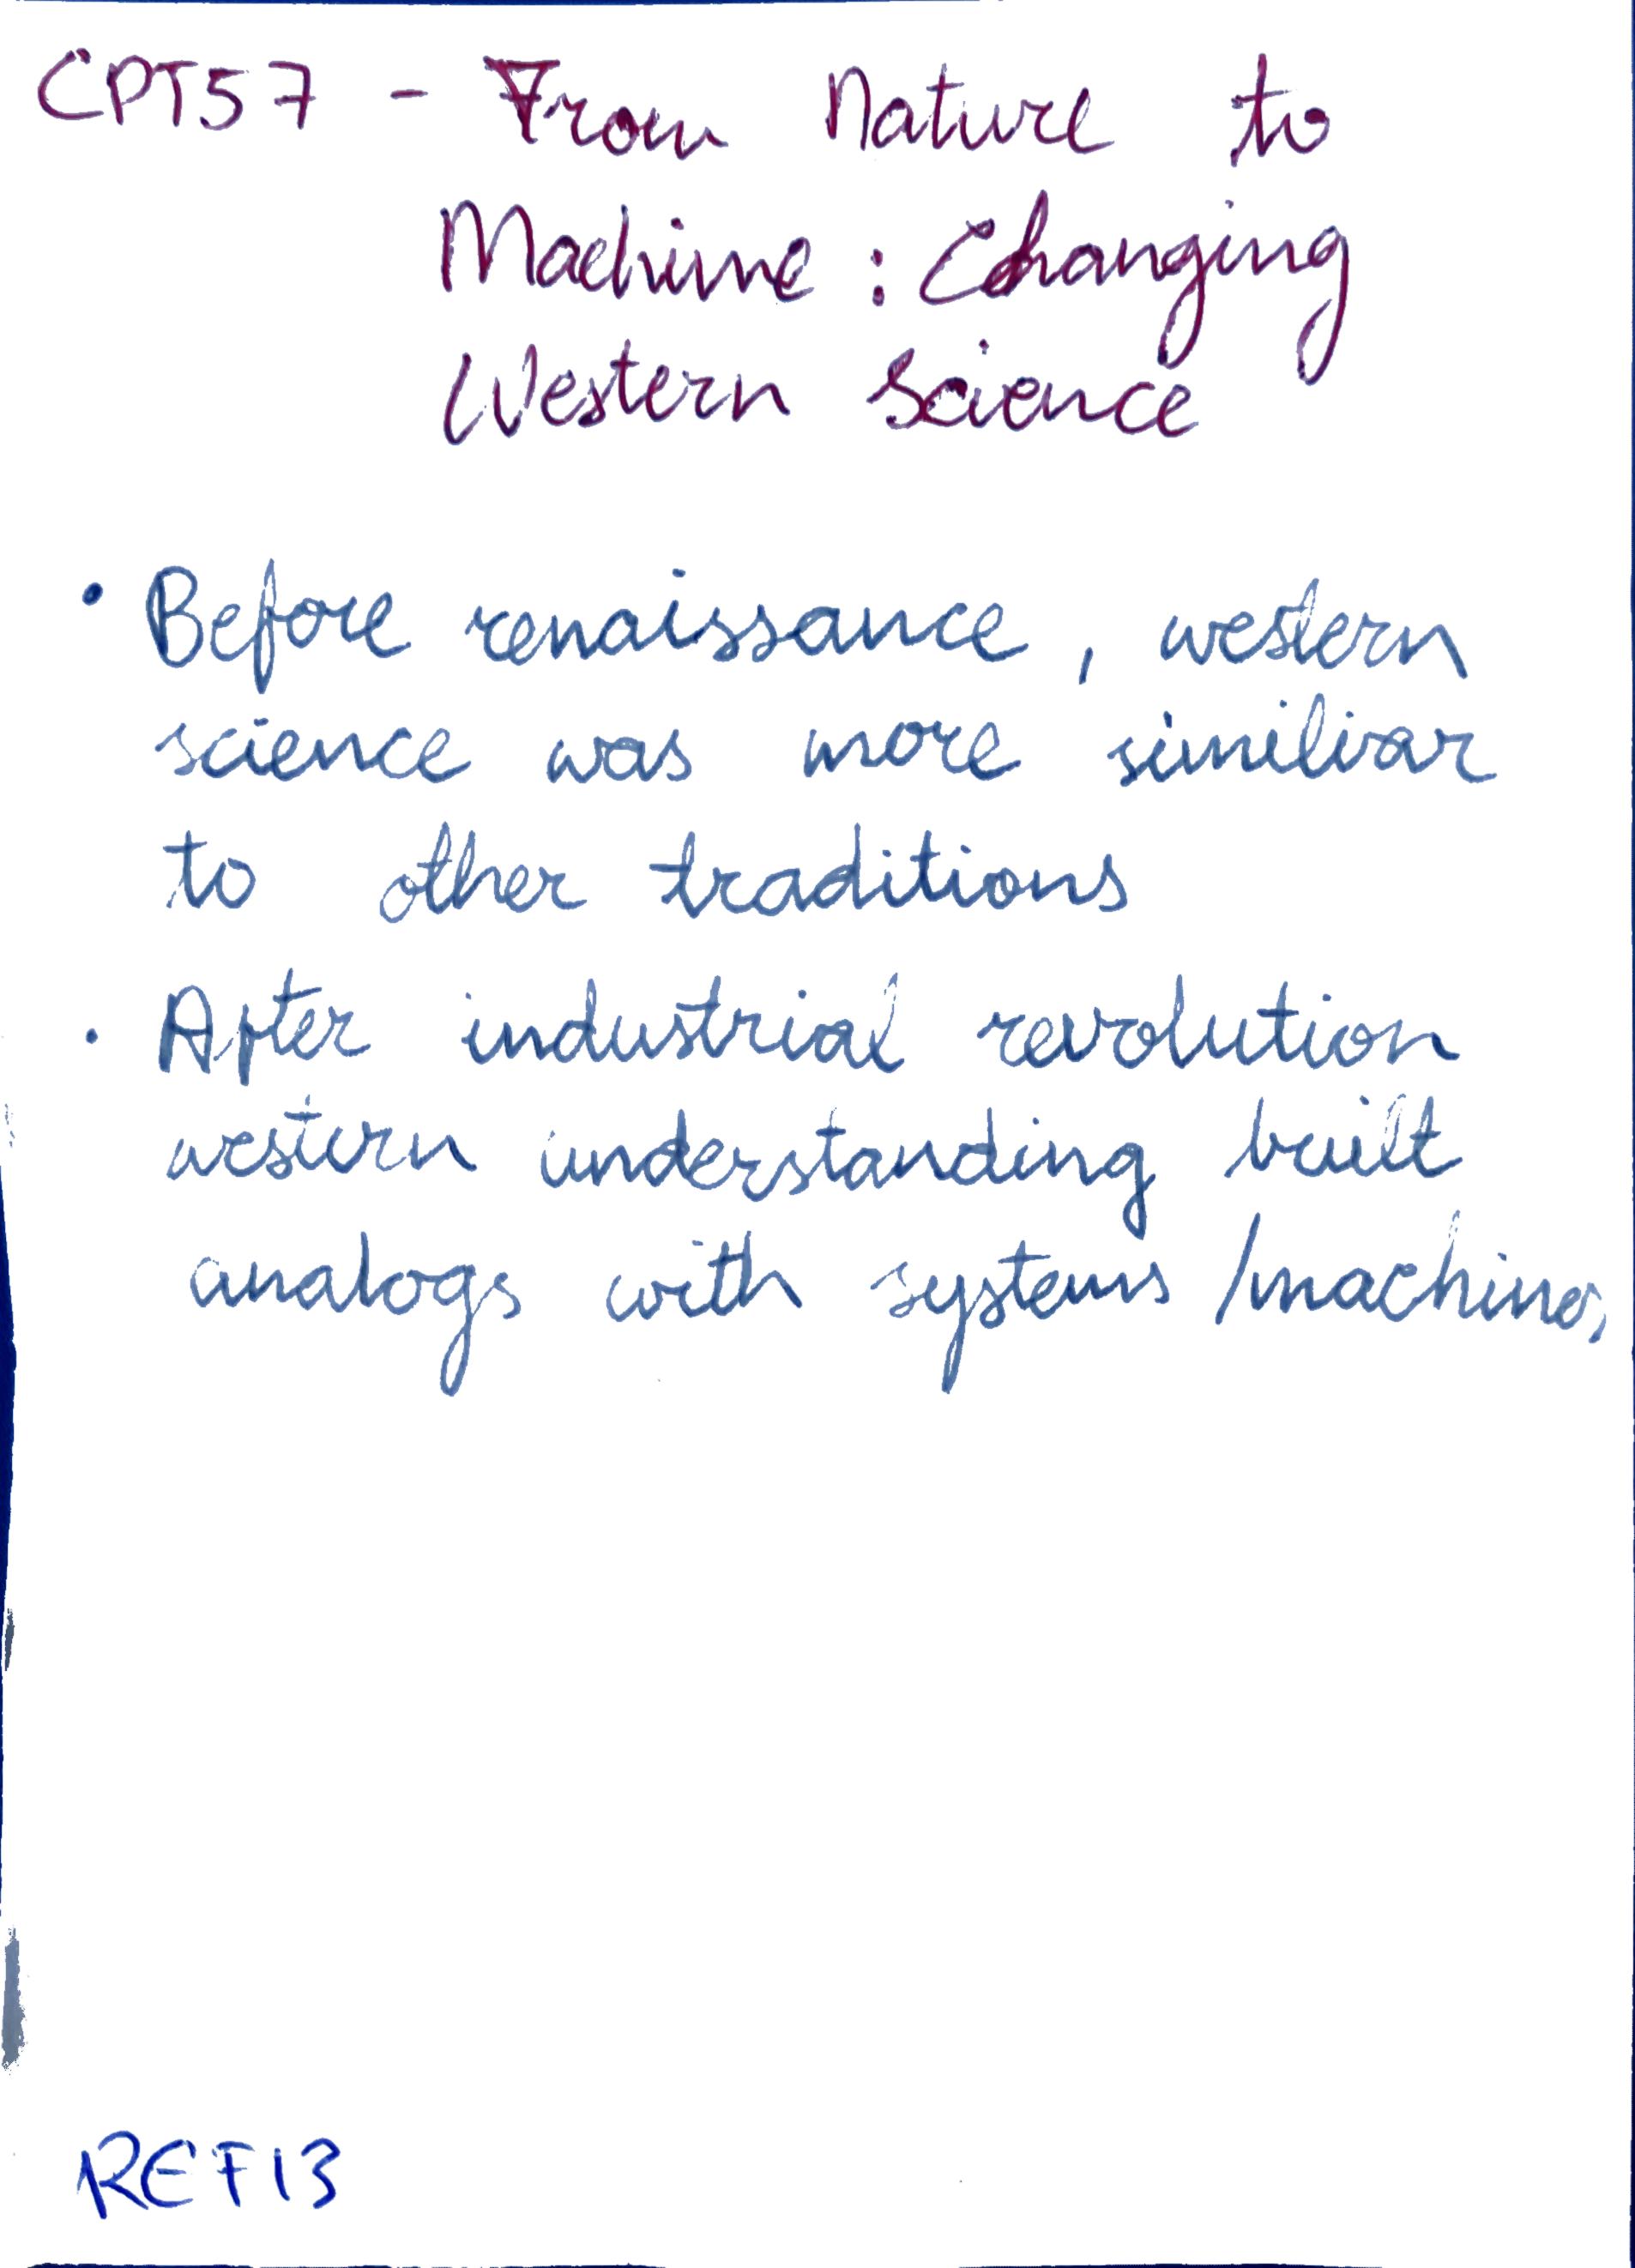 CPT57 - From Nature to
Machine : Changing
Western Science
• Before renaissance, western
science was more similiar
to other traditions
• After industrial revolution
western understanding built
analogs with systems /machines
REF13